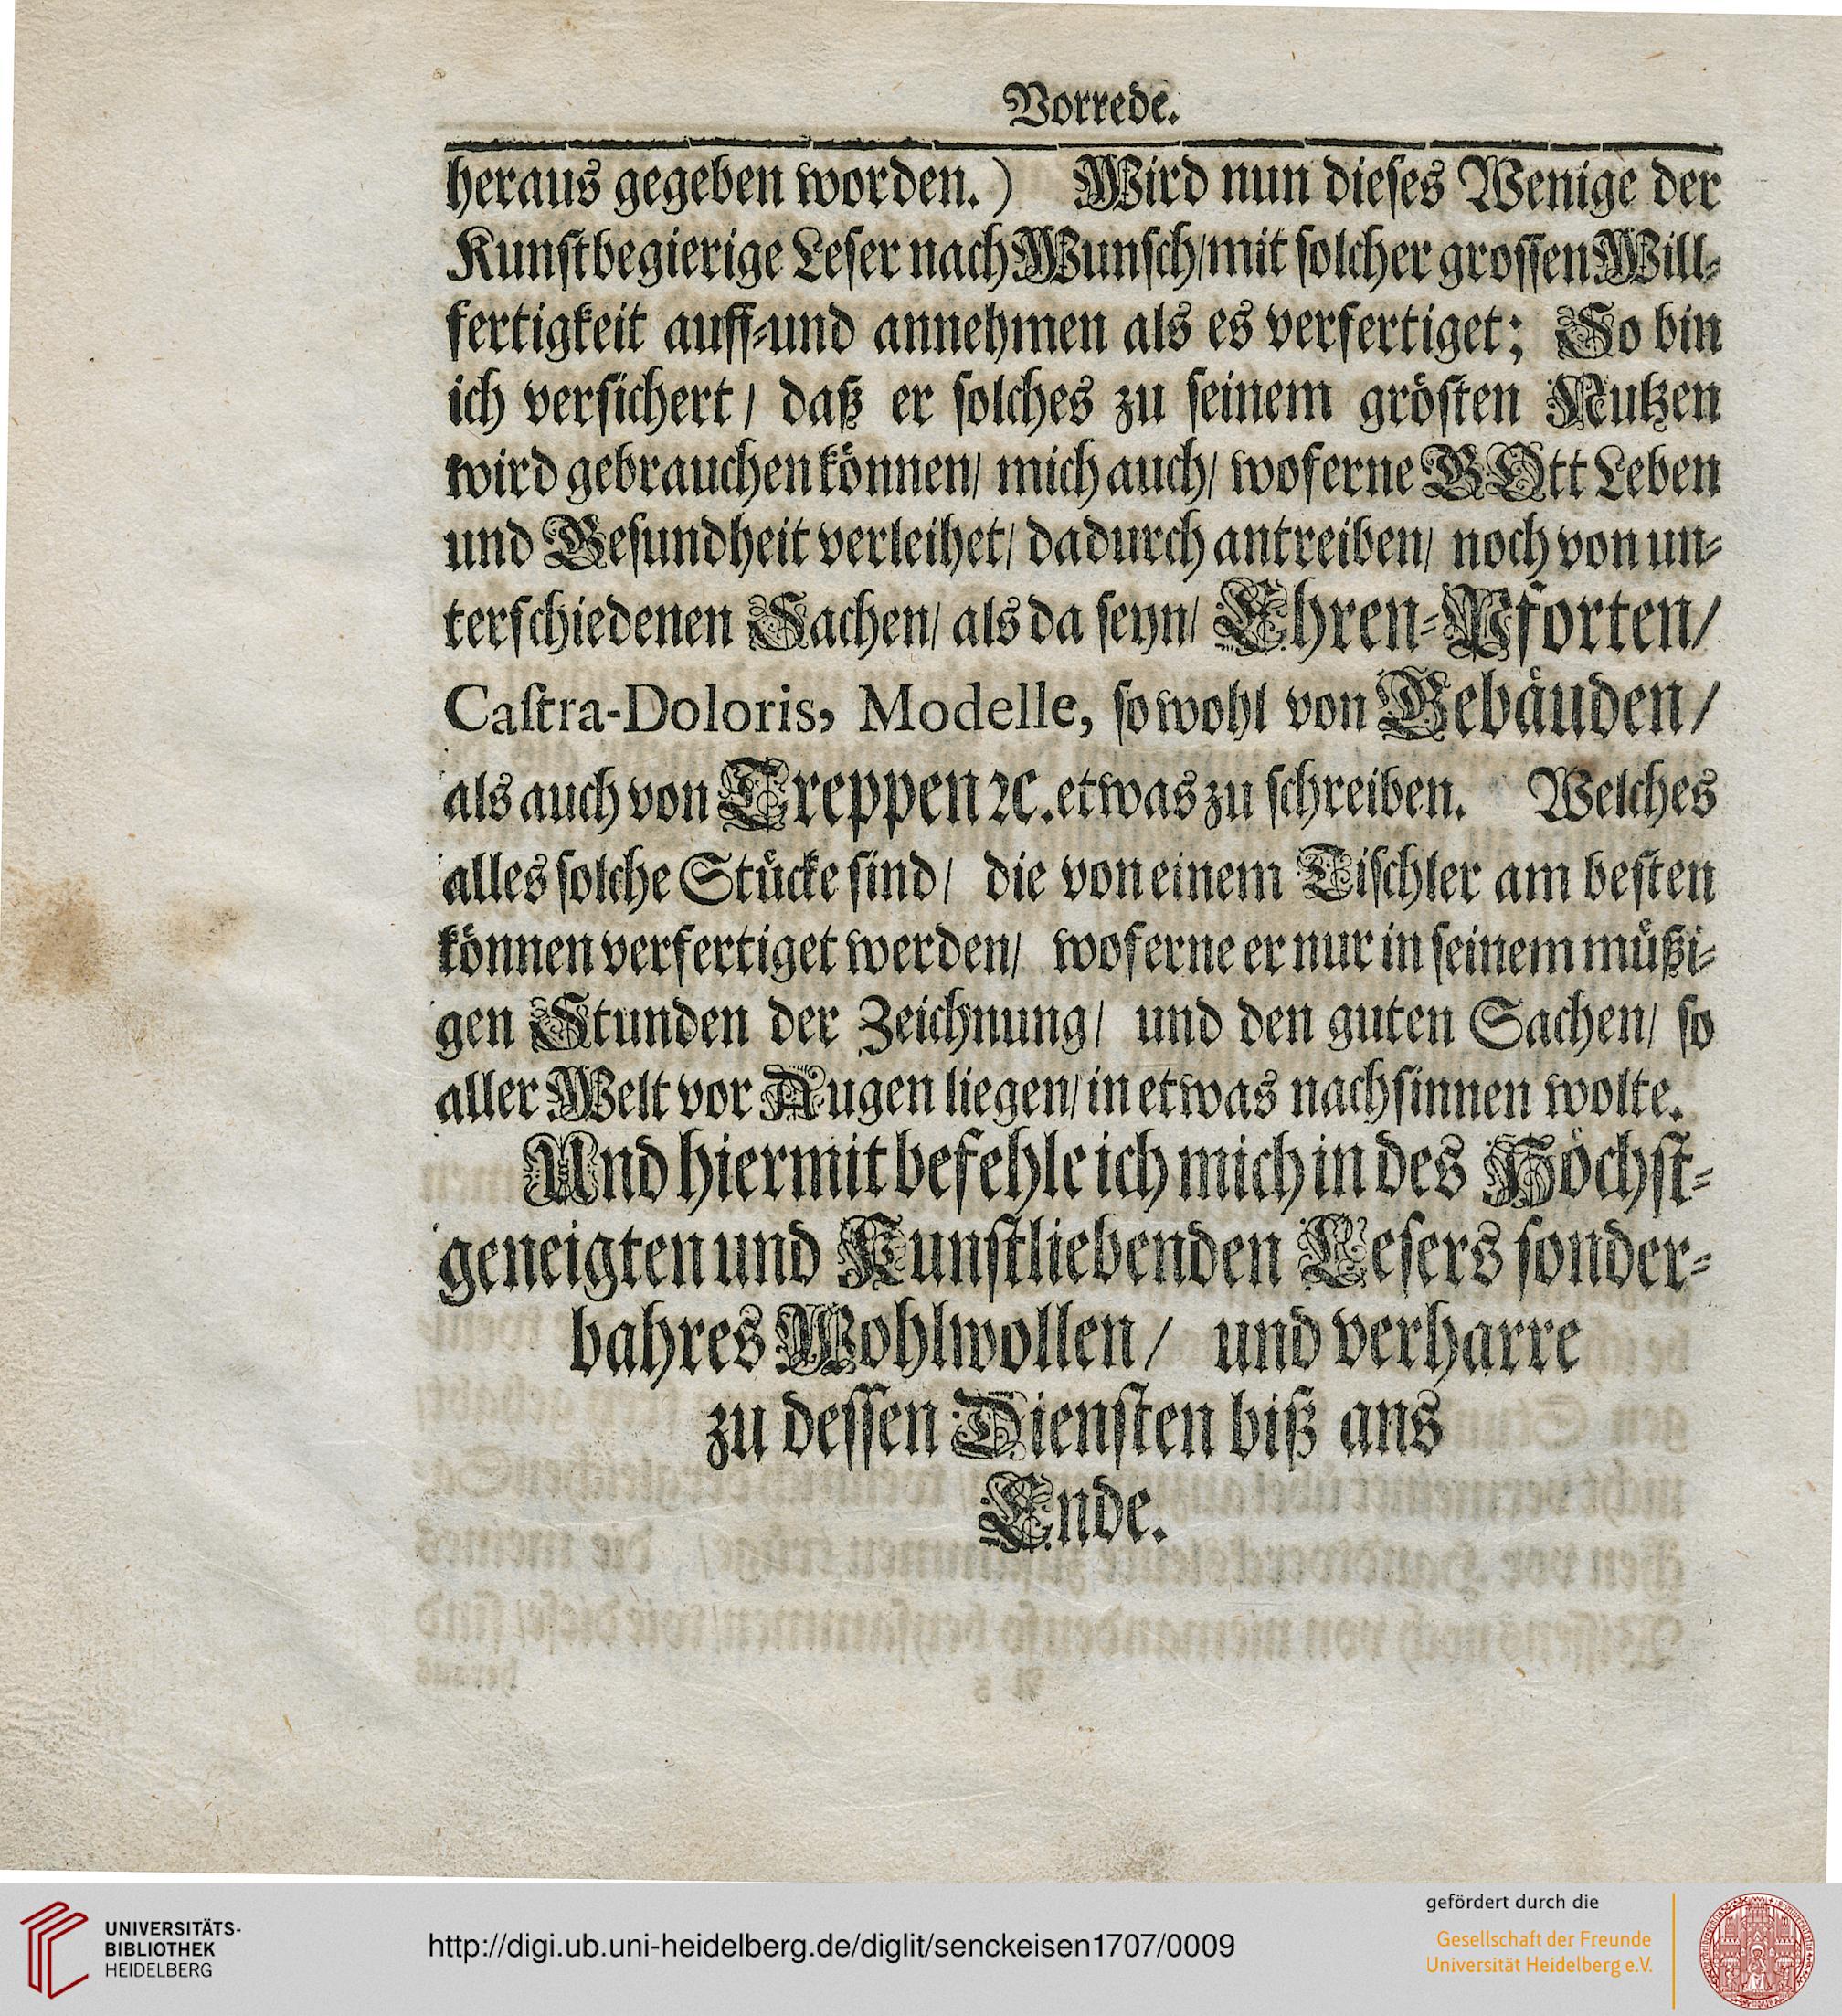 Vorrede.
heraus gegeben worden.) Wird nun dieſes Wenige der
Kunſtbegierige Leſer nach Wunſch/mit ſolcher groſſen Will-
fertigkeit auff-und annehmen als es verfertiget; So bin
ich verſichert/ daß er ſolches zu ſeinem gröſten Nutzen
wird gebrauchen können/ mich auch/ woferne GOtt Leben
und Geſundheit verleihet/ dadurch antreiben/ noch von un-
terſchiedenen Sachen/ als da ſeyn/ Ehren-Pforten/
Caſtra-Doloris, Modelle, ſo wohl von Gebäuden/
als auch von Treppen ꝛc. etwas zu ſchreiben. Welches
alles ſolche Stücke ſind/ die von einem Tiſchler am beſten
können verfertiget werden/ woferne er nur in ſeinem müßi-
gen Stunden der Zeichnung/ und den guten Sachen/ ſo
aller Welt vor Augen liegen/ in etwas nachſinnen wolte.
Und hiermit befehle ich mich in des Höchſt-
geneigten und Kunſtliebenden Leſers ſonder-
bahres Wohlwollen/ und verharre
zu deſſen Dienſten biß ans
Ende.
UNIVERSITÄTS-
BIBLIOTHEK
HEIDELBERG
http://digi.ub.uni-heidelberg.de/diglit/senckeisen1707/0009
gefördert durch die
Gesellschaft der Freunde
Universität Heidelberg e.V.